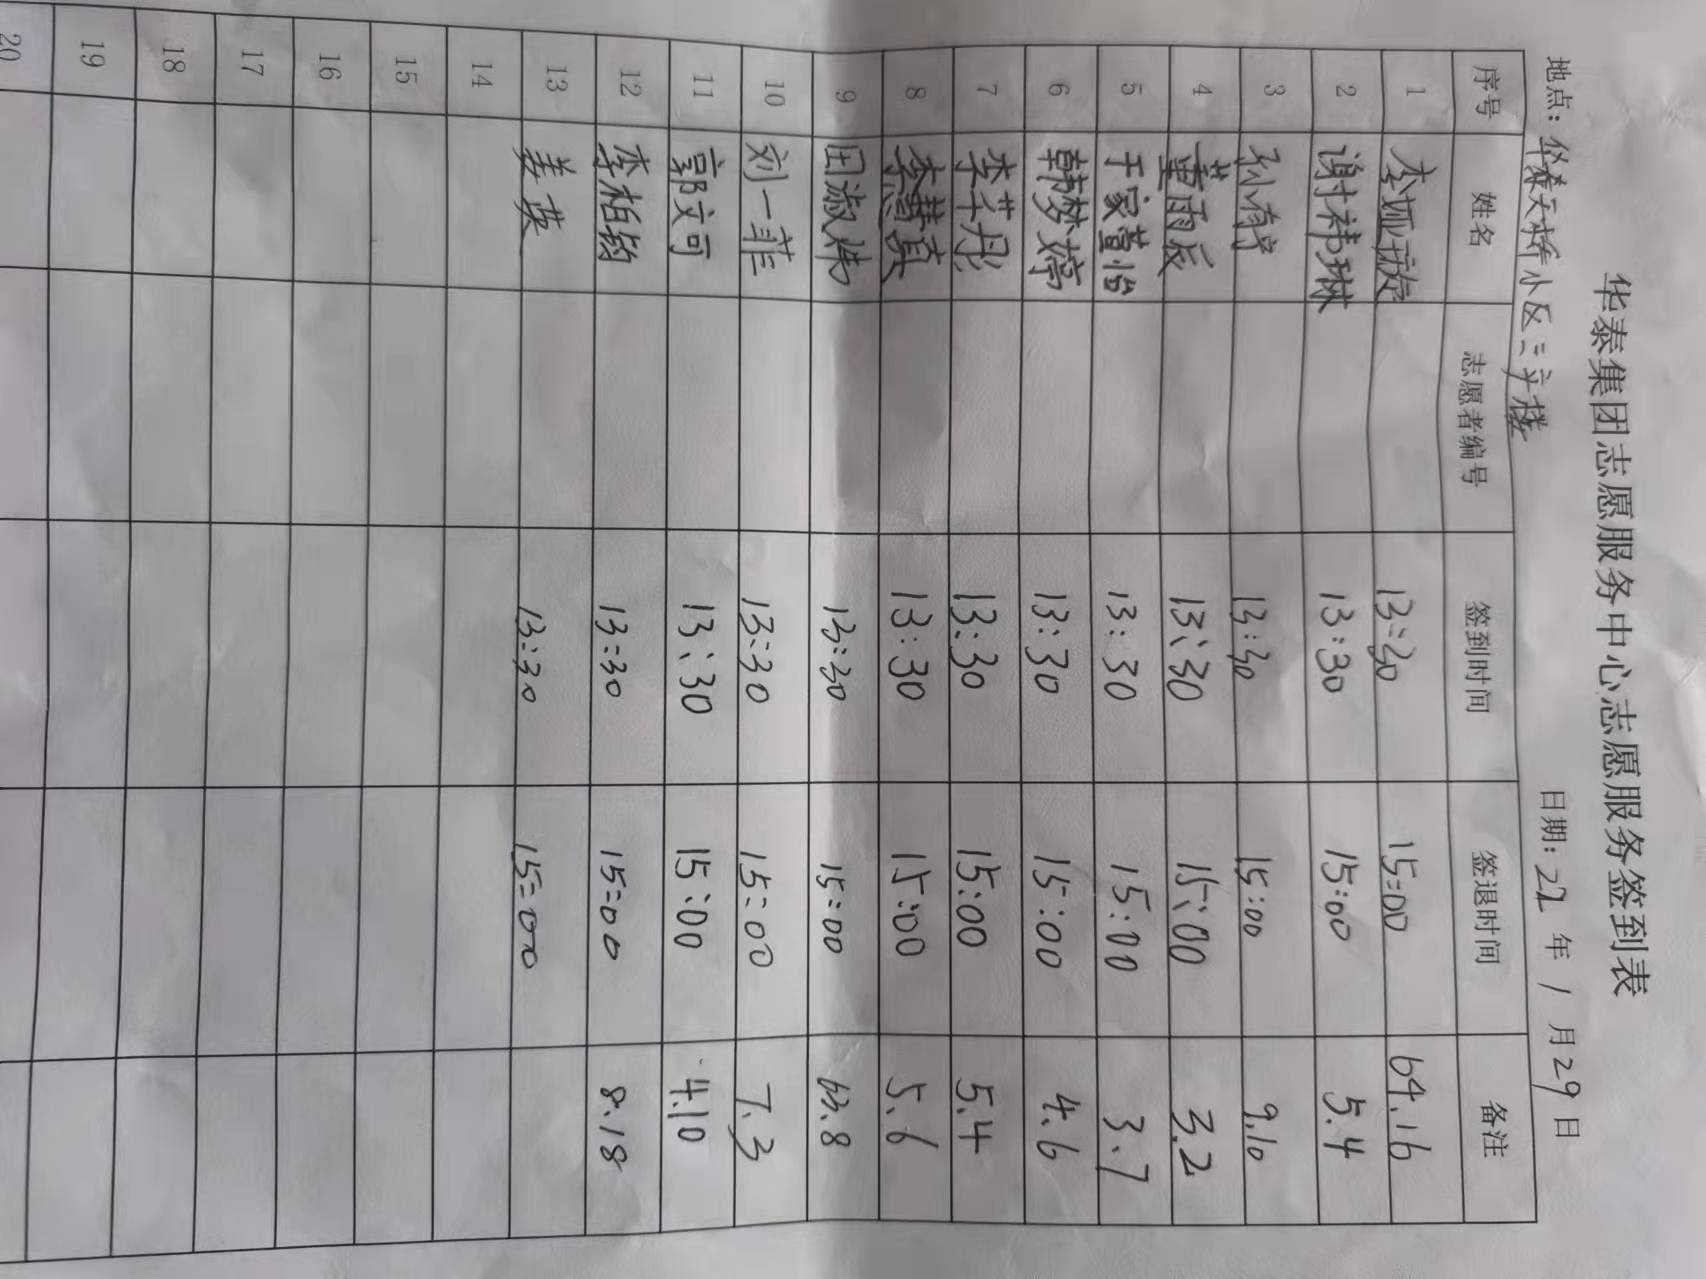 华泰集团志愿服务中心志愿服务签到表
地点：华泰天桥小区三节楼 日期：22 年 1 月 29 日
序号 姓名 志愿者编号 签到时间 签退时间 备注
1 李娅璇 13:30 15:00 64.16
2 谢祎琳 13:30 15:00 5.4
3 13:30 15:00 9.10
4 董雨辰 13:30 15:00 3.2
5 于家萱怡 13:30 15:00 3.7
6 韩梦婷 13:30 15:00 4.6
7 李芊彤 13:30 15:00 5.4
8 李慧真 13:30 15:00 5.6
9 田淑 13:30 15:00 63.8
10 刘一菲 13:30 15:00 7.3
11 郭文可 13:30 15:00 4.10
12 李柏 13:30 15:00 8.18
13 姜英 13:30 15:00
14
15
16
17
18
19
20